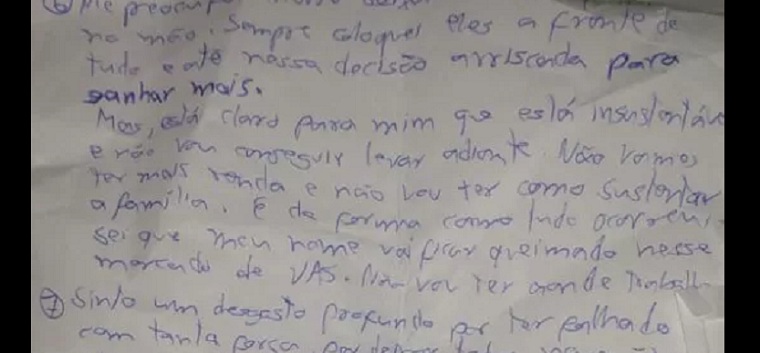 ⑥ Me preocup
na mão. Sempre coloquei eles a fronte de
tudo e até nessa decisão arriscada para
ganhar mais.
Mas, está claro para mim que está insustentáv
e não vou conseguir levar adiante. Não vamos
ter mais renda e não vou ter como sustentar
a família. E da forma como tudo ocorreu,
sei que meu nome vai ficar queimado nesse
mercado de VAS. Não vou ter aonde Trabalh
⑦ Sinto um desgosto profundo por ter falhado
com tanta força